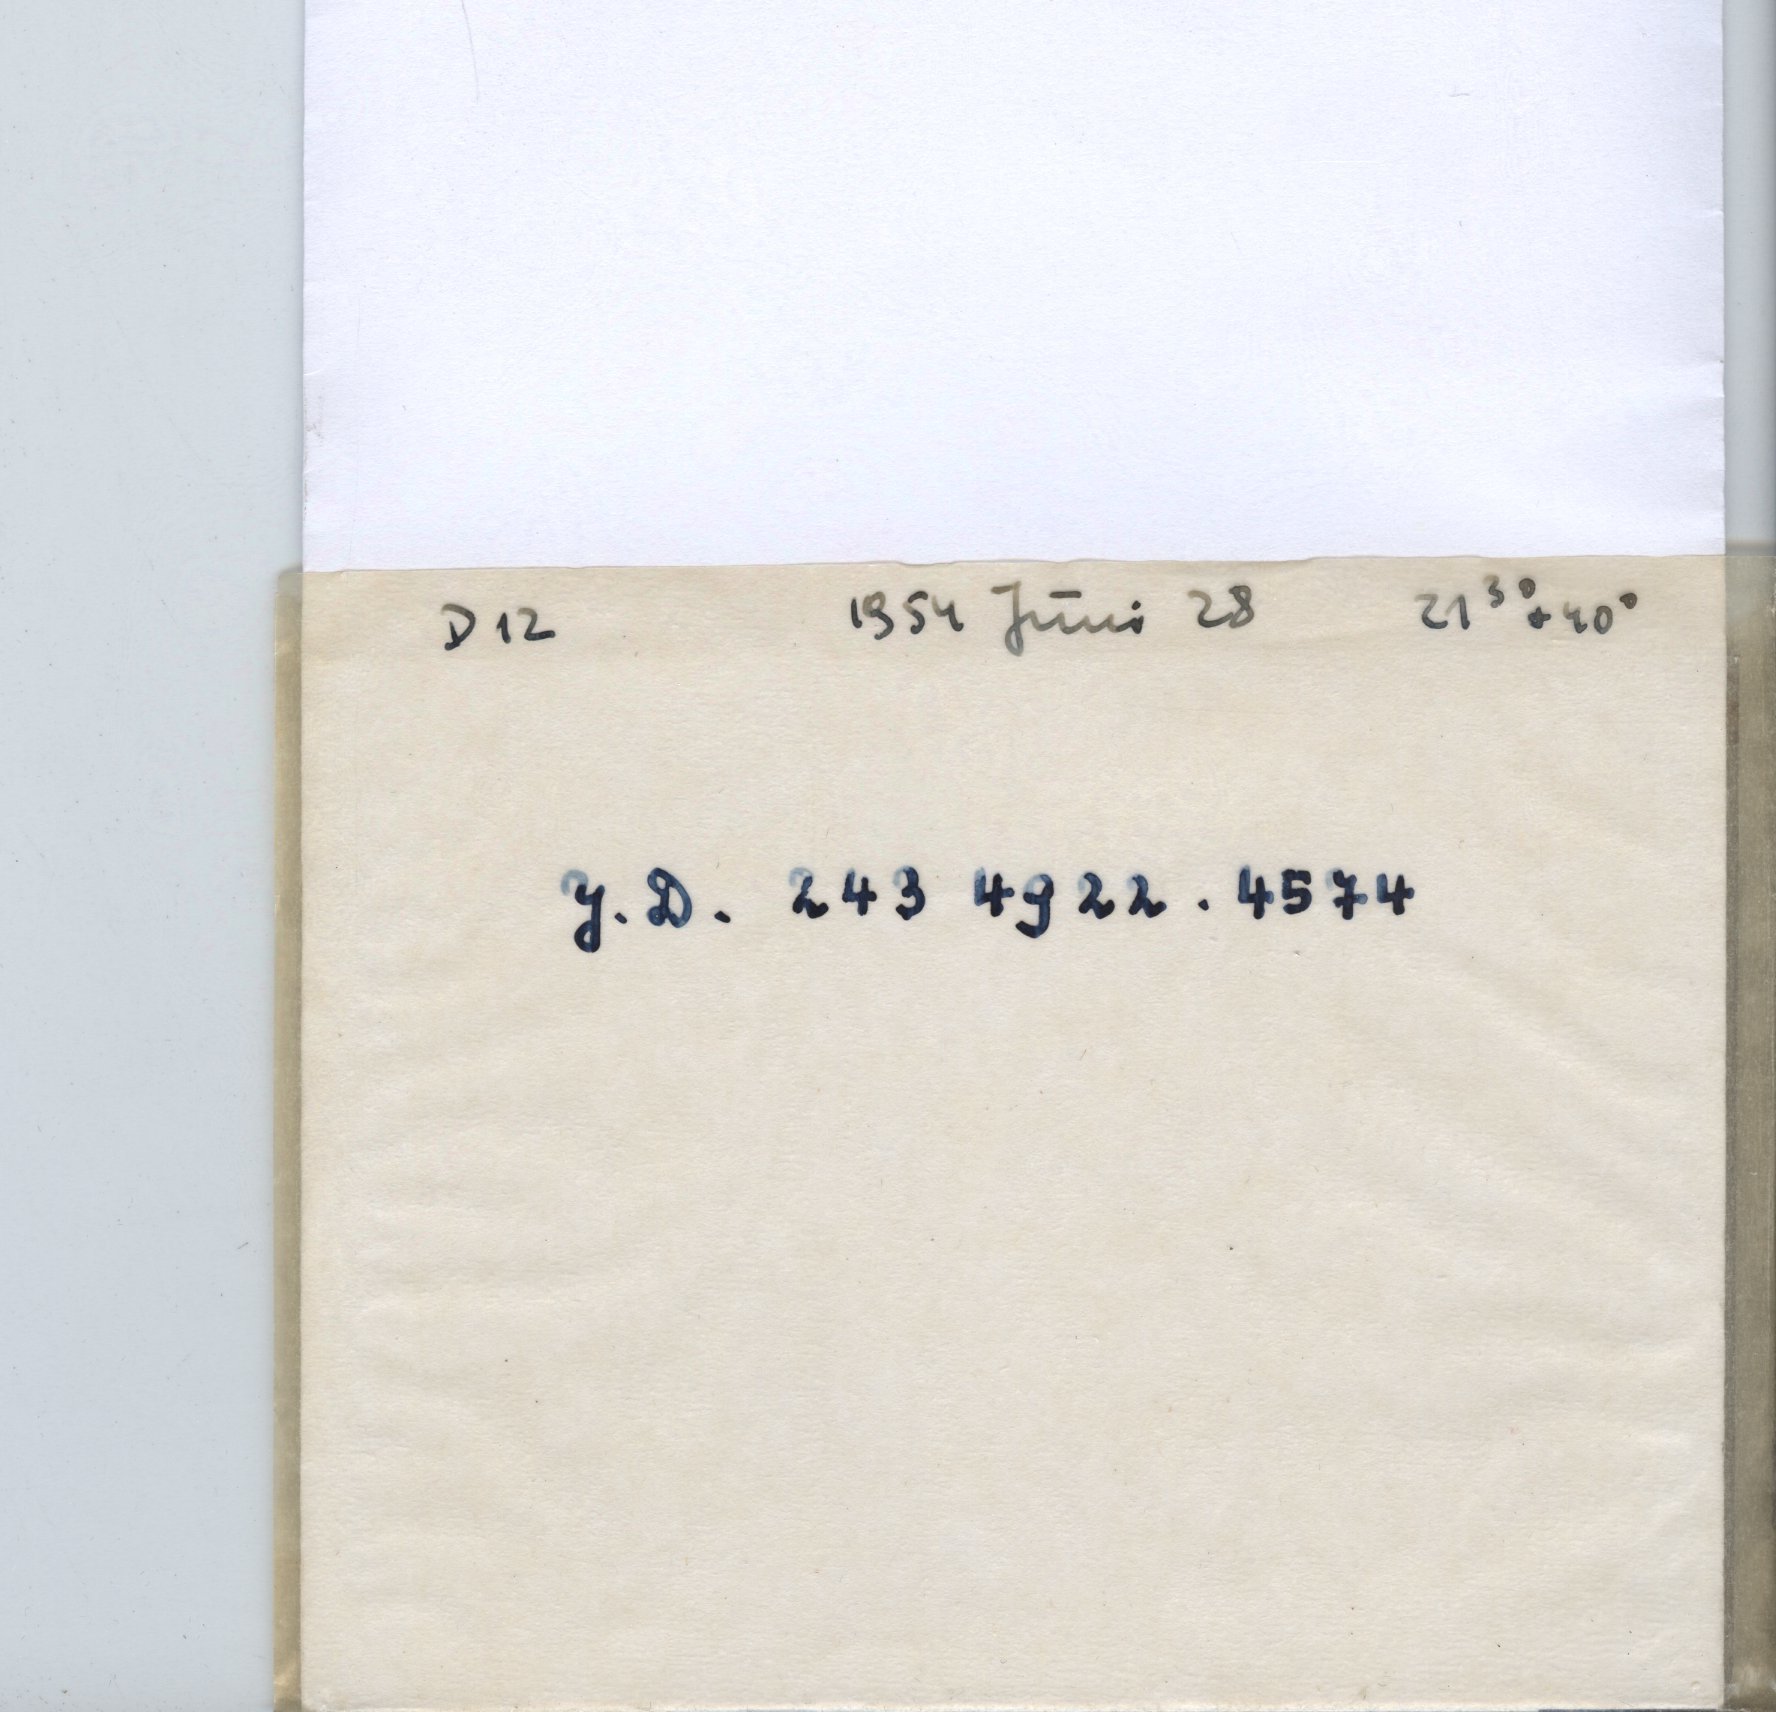 D 12 1954 Juni 28 21³⁰ + 40°
J. D. 243 4922 . 4574